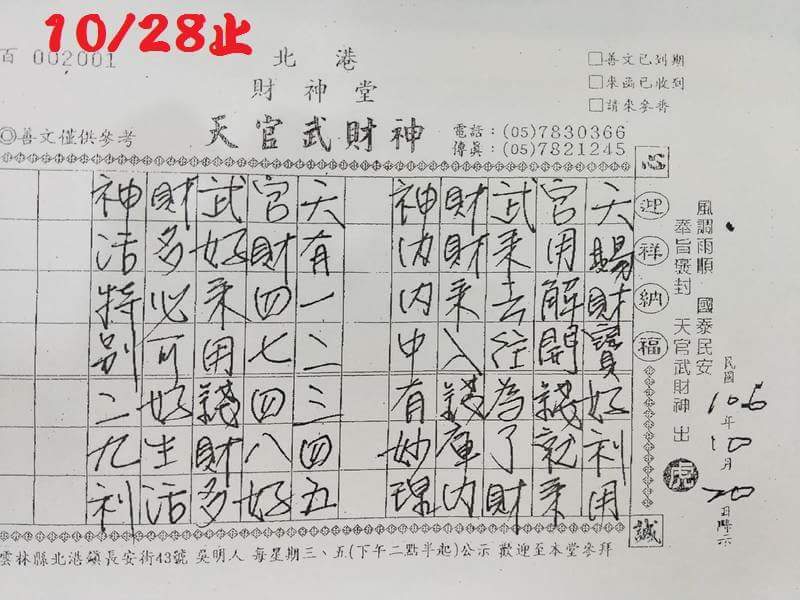 10/28止
百 002001
北港
財神堂
天官武財神
◎善文僅供參考
電話：(05)7830366
傳真：(05)7821245
□善文已到期
□來函已收到
□請來參香
風調雨順 國泰民安
奉旨褒封 天官武財神 出
民國106年10月20日降示
虎
心
迎祥納福
誠
天賜財寶好利用
官用解開錢就來
武來去往為了財
財財來入錢庫內
神內內中有妙理
天有一二三四五
官財四七四八好
武好來用錢財多
財多必可好生活
神活特別二九利
雲林縣北港鎮長安街43號 吳明人 每星期三、五(下午二點半起)公示 歡迎至本堂參拜